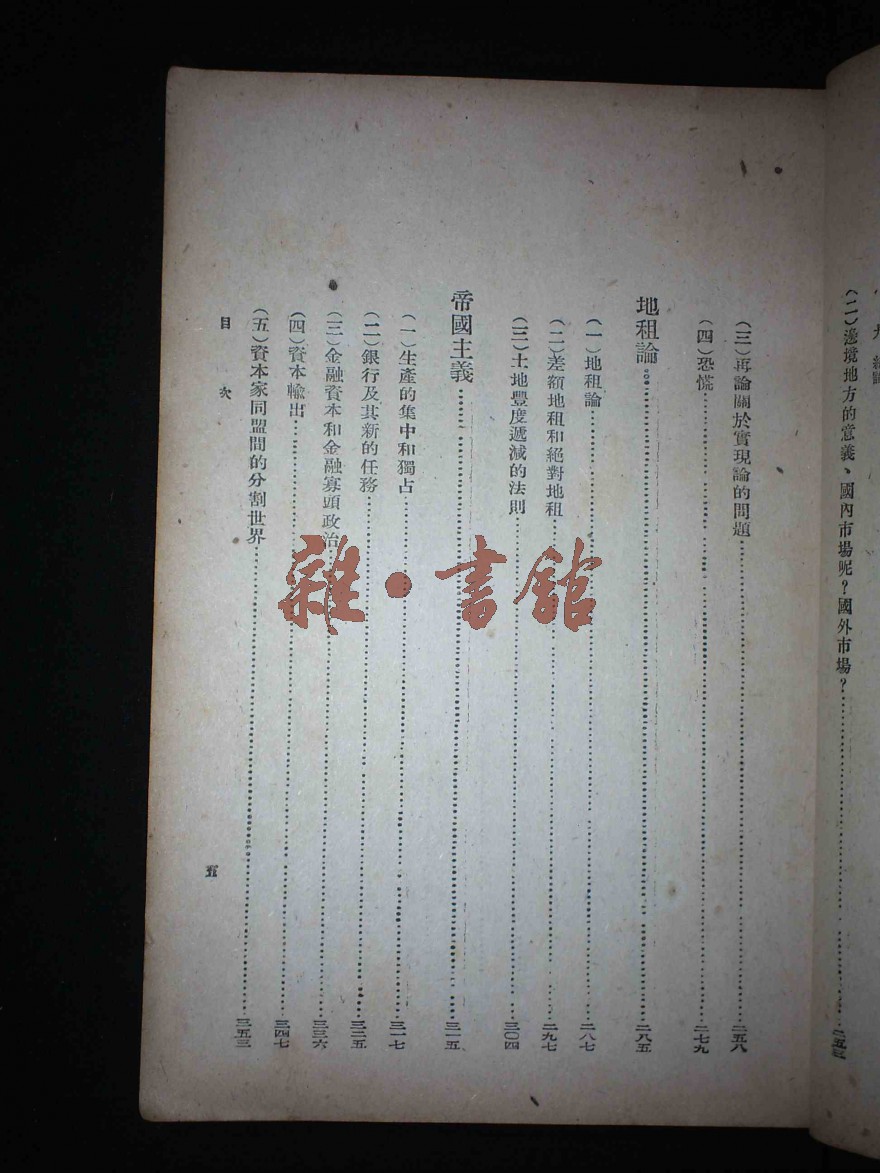 (二)邊境地方的意義、國內市場呢?國外市場?……二五三
(三)再論關於實現論的問題……二五八
(四)恐慌……二七九
地租論……二八五
(一)地租論……二八七
(二)差額地租和絕對地租……二九七
(三)土地豐度遞減的法則……三〇四
帝國主義……三一五
(一)生產的集中和獨占……三一七
(二)銀行及其新的任務……三二五
(三)金融資本和金融寡頭政治……三三六
(四)資本輸出……三四七
(五)資本家同盟間的分割世界……三五三
目次
五
雜·書館